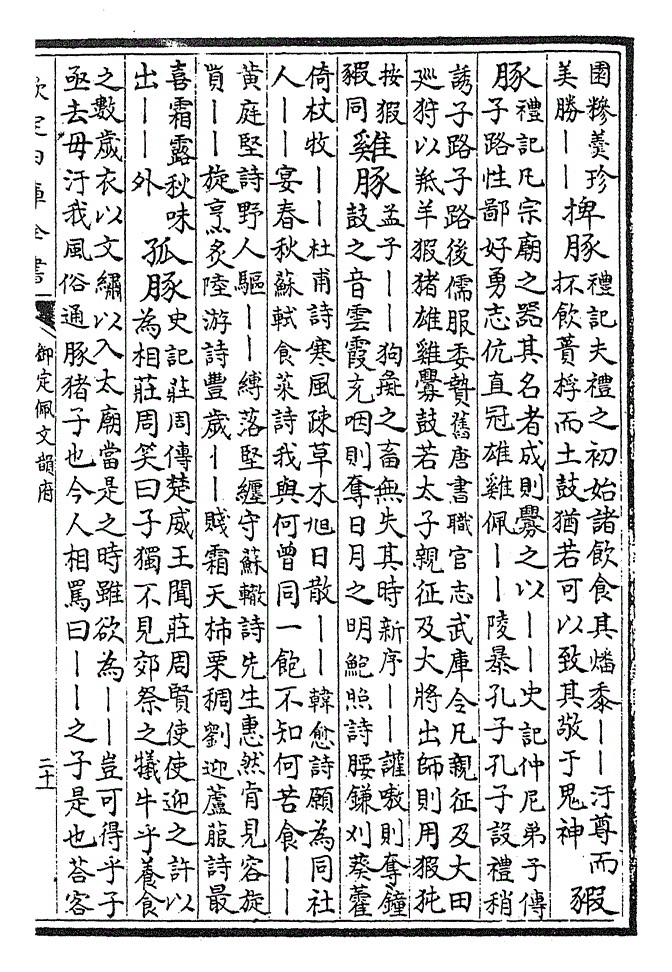 圉糝羹珍
美勝——
捭豚
禮記夫禮之初始諸飲食其燔黍——汙尊而
抔飲蕢桴而土鼓猶若可以致其敬于鬼神
豭
豚
禮記凡宗廟之器其名者成則釁之以——史記仲尼弟子傳
子路性鄙好勇志伉直冠雄雞佩——陵暴孔子孔子設禮稍
誘子路子路後儒服委贄舊唐書職官志武庫令凡親征及大田
廵狩以羝羊猳猪雄雞釁鼓若太子親征及大將出師則用猳㹠
按猳
豭同
雞豚
孟子——狗彘之畜無失其時新序——讙嗷則奪鐘
鼓之音雲霞充咽則奪日月之明鮑照詩腰鎌刈葵藿
倚杖牧——杜甫詩寒風疎草木旭日散——韓愈詩願為同社
人——宴春秋蘇軾食菜詩我與何曾同一飽不知何苦食——
黃庭堅詩野人驅——縛落堅纒守蘇轍詩先生惠然肯見容旋
買——旋烹炙陸游詩豐歲——賤霜天柿栗稠劉迎蘆菔詩最
喜霜露秋味
出——外
孤豚
史記莊周傳楚威王聞莊周賢使使迎之許以
為相莊周笑曰子獨不見郊祭之犧牛乎養食
之數歲衣以文繡以入太廟當是之時雖欲為——豈可得乎子
亟去毋汙我風俗通豚猪子也今人相罵曰——之子是也荅客
欽定四庫全書
御定佩文韻府
二十